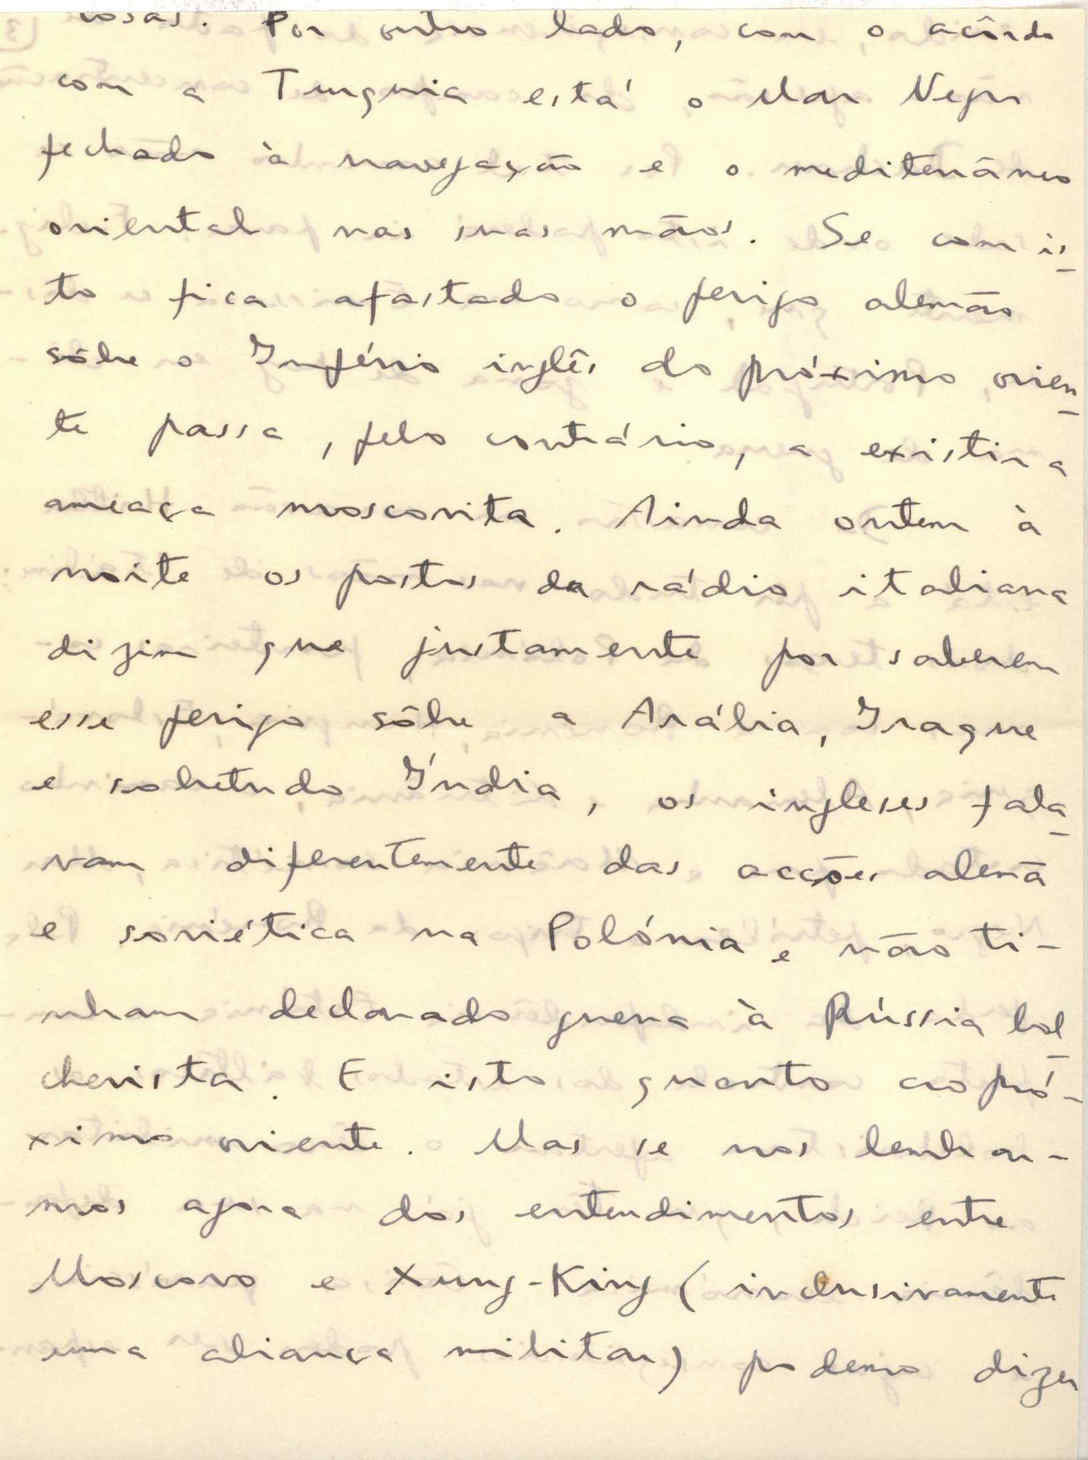 cosas. Por outro lado, com o acôrdo
com a Turquia está o Mar Negro
fechado à navegação e o mediterrâneo
oriental nas suas mãos. Se com is-
to fica afastado o perigo alemão
sôbre o Império inglês do próximo orien-
te passa, pelo contrário, a existir a
ameaça moscovita. Ainda ontem à
noite os postos da rádio italiana
dizim que justamente por saberem
esse perigo sôbre a Arábia, Iraque
e sobretudo Índia, os ingleses fala-
vam diferentemente das acções alemã
e soviética na Polónia e não ti-
nham declarado guerra à Rússia bol-
chevista. E isto quanto ao pró-
ximo oriente. Mas se nos lembrar-
mos agora dos entendimentos entre
Moscovo e Xung-King (inclusivamente
uma aliança militar) podemo dizer